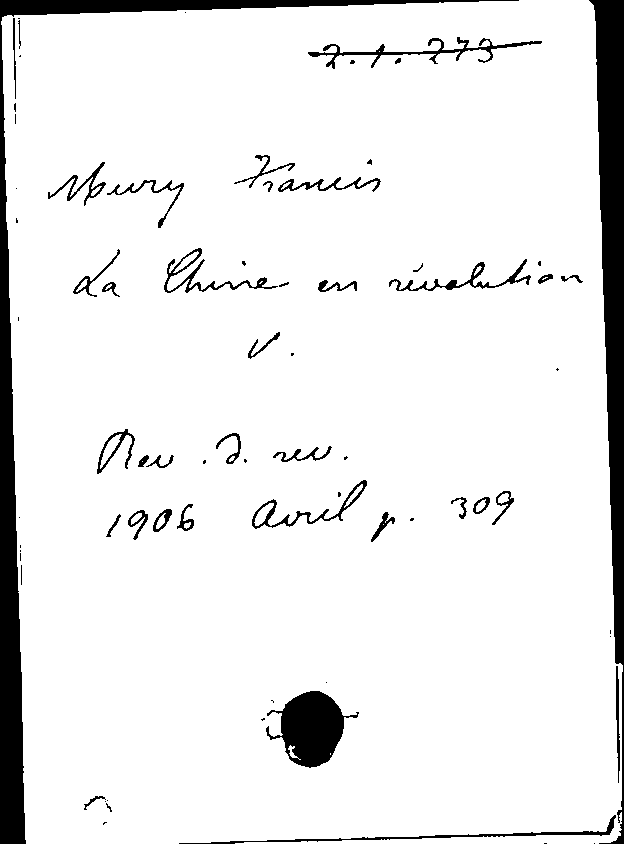 2.1.273
Mury Francis
La Chine en révolution
V.
Rev. d. rev.
1906 Avril p. 309